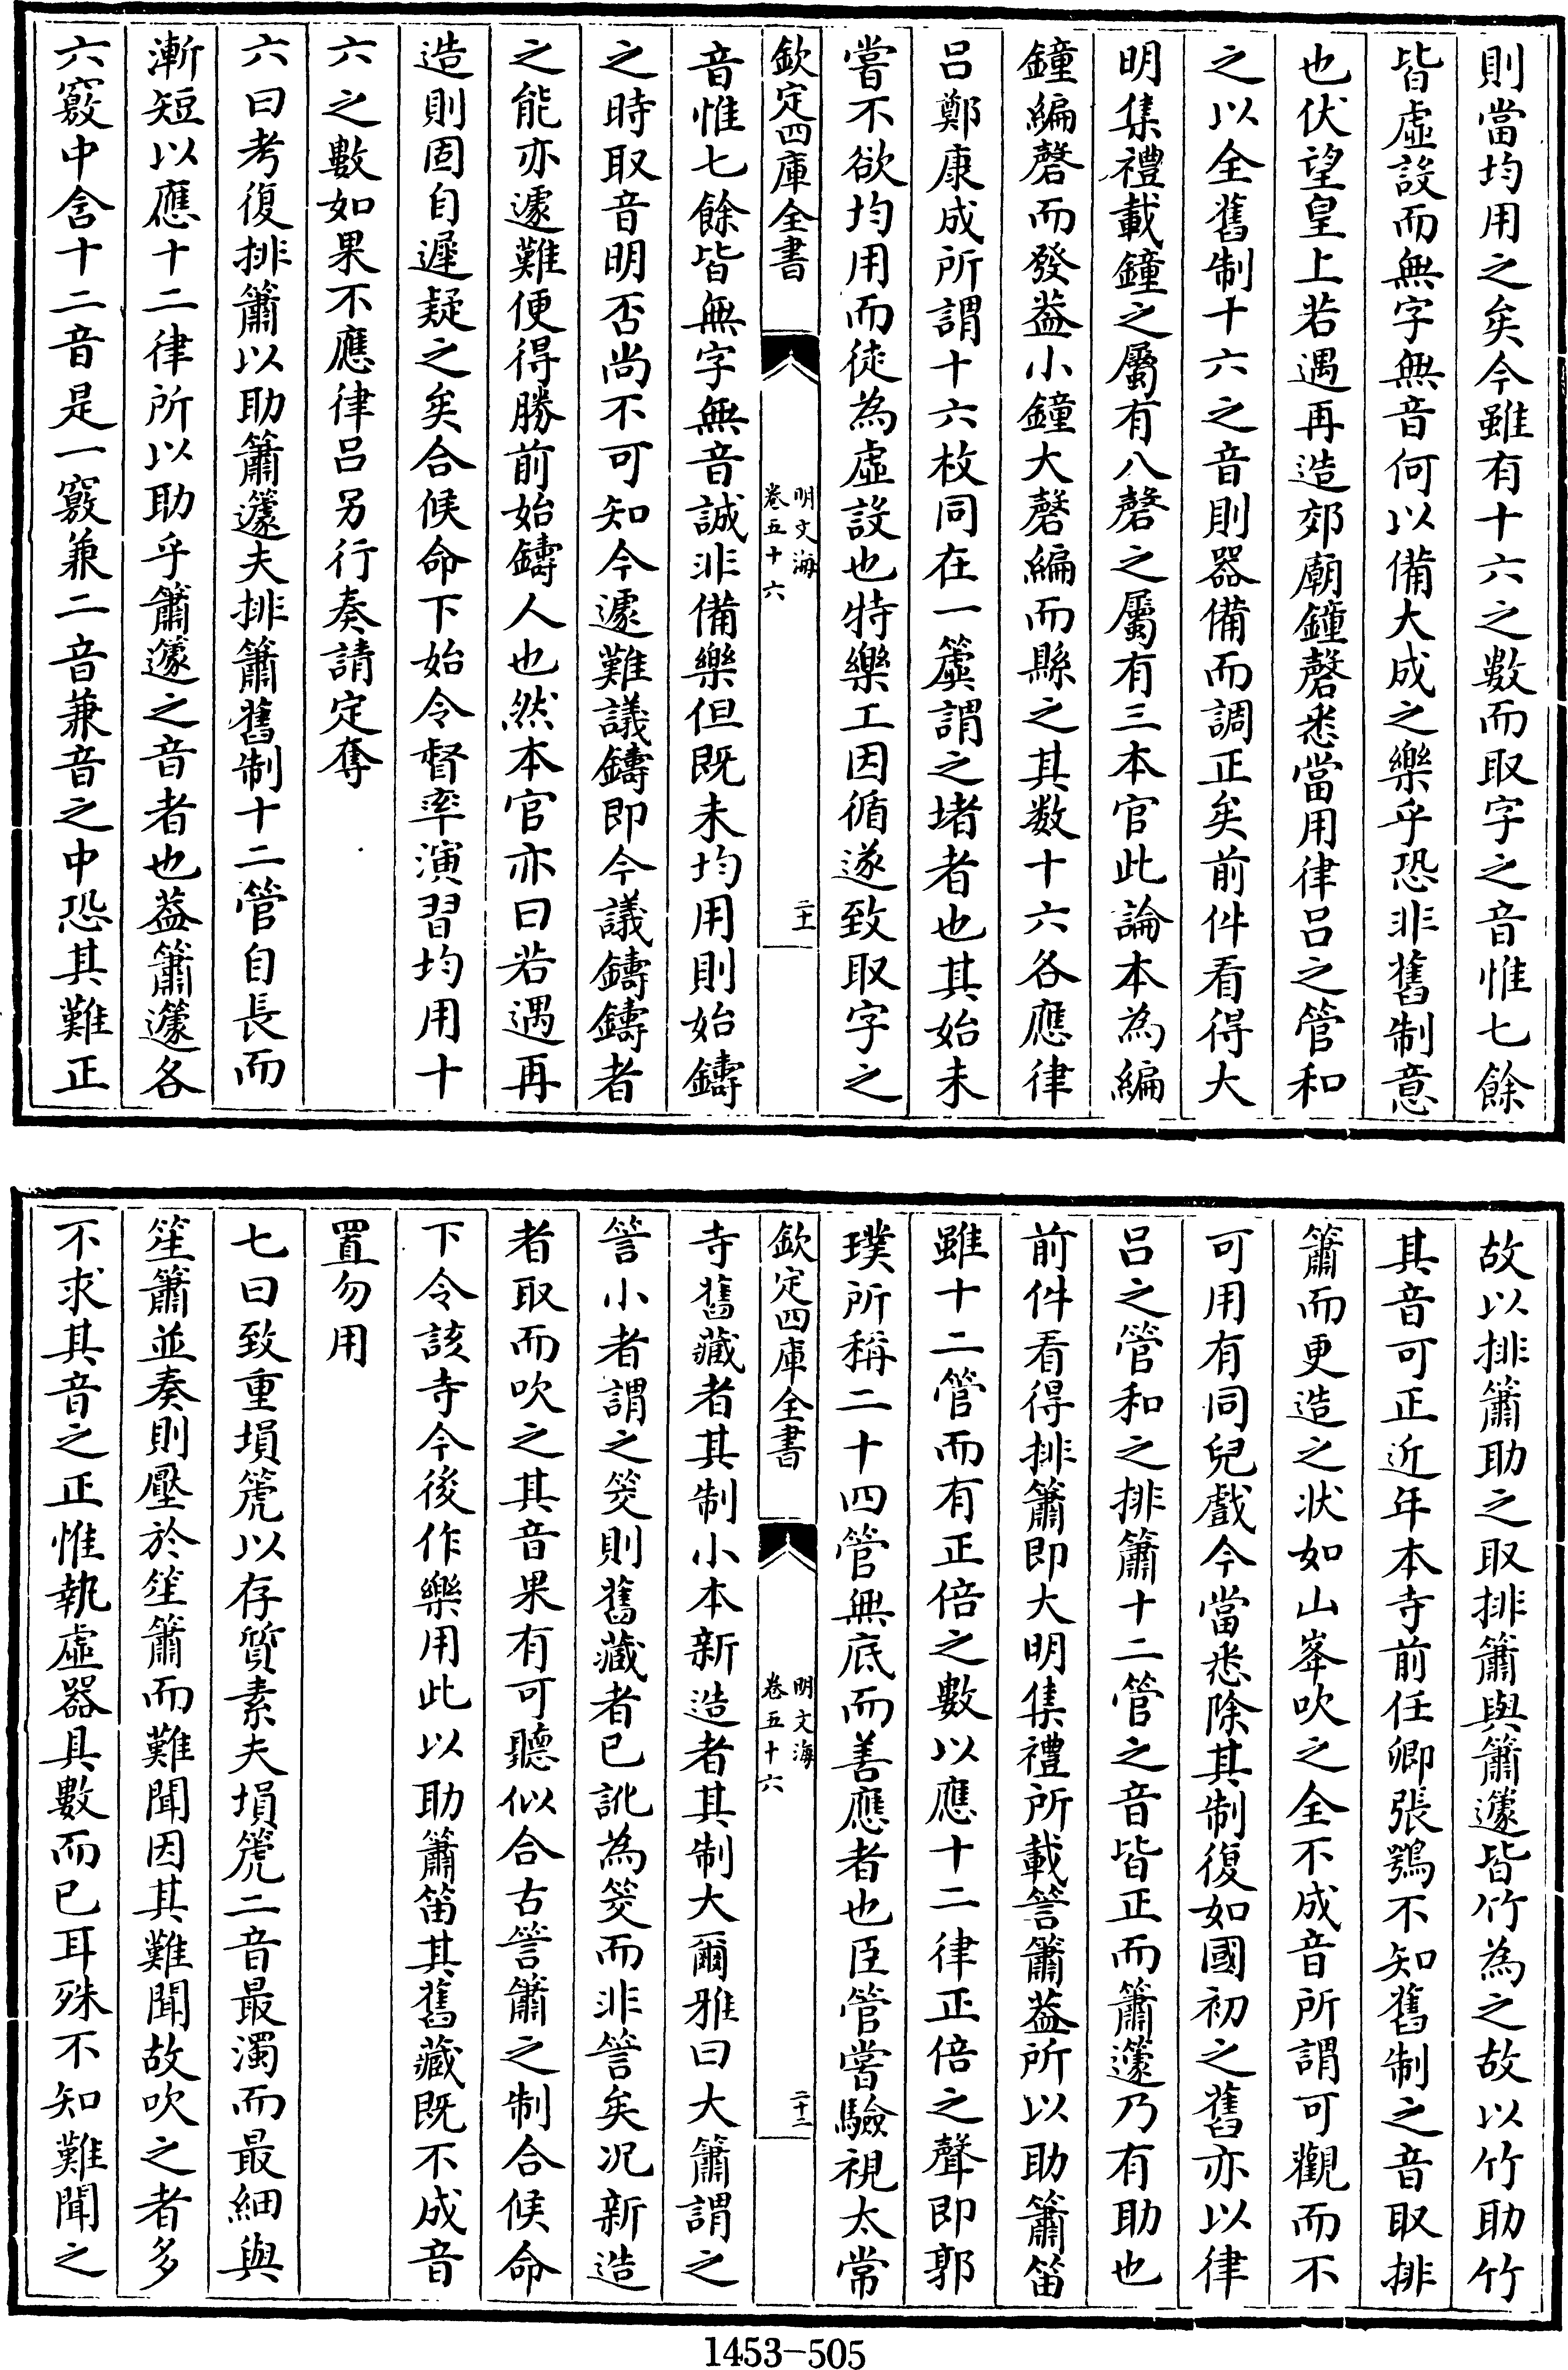 則當均用之矣今雖有十六之數而取字之音惟七餘
皆虛設而無字無音何以備大成之樂乎恐非舊制意
也伏望皇上若遇再造郊廟鐘磬悉當用律呂之管和
之以全舊制十六之音則器備而調正矣前件看得大
明集禮載鐘之屬有八磬之屬有三本官此論本為編
鐘編磬而發葢小鐘大磬編而縣之其数十六各應律
呂鄭康成所謂十六枚同在一簴謂之堵者也其始未
嘗不欲均用而徒為虛設也特樂工因循遂致取字之
欽定四庫全書
明文海
卷五十六
二十一
音惟七餘皆無字無音誠非備樂但既未均用則始鑄
之時取音明否尚不可知今遽難議鑄即今議鑄鑄者
之能亦遽難便得勝前始鑄人也然本官亦曰若遇再
造則固自遲疑之矣合候命下始令督率演習均用十
六之數如果不應律呂另行奏請定奪
六曰考復排簫以助簫篴夫排簫舊制十二管自長而
漸短以應十二律所以助乎簫篴之音者也葢簫篴各
六竅中含十二音是一竅兼二音兼音之中恐其難正
故以排簫助之取排簫與簫篴皆竹為之故以竹助竹
其音可正近年本寺前任卿張鶚不知舊制之音取排
簫而更造之状如山峯吹之全不成音所謂可觀而不
可用有同兒戲今當悉除其制復如國初之舊亦以律
呂之管和之排簫十二管之音皆正而簫篴乃有助也
前件看得排簫即大明集禮所載䇾簫葢所以助簫笛
雖十二管而有正倍之數以應十二律正倍之聲即郭
璞所稱二十四管無底而善應者也臣管嘗驗視太常
欽定四庫全書
明文海
卷五十六
二十二
寺舊藏者其制小本新造者其制大爾雅曰大簫謂之
䇾小者謂之筊則舊藏者已訛為筊而非䇾矣况新造
者取而吹之其音果有可聽似合古䇾簫之制合候命
下令該寺今後作樂用此以助簫笛其舊藏既不成音
置勿用
七曰致重塤箎以存質素夫塤箎二音最濁而最細與
笙簫並奏則壓於笙簫而難聞因其難聞故吹之者多
不求其音之正惟執虛器具數而已耳殊不知難聞之
1453-505